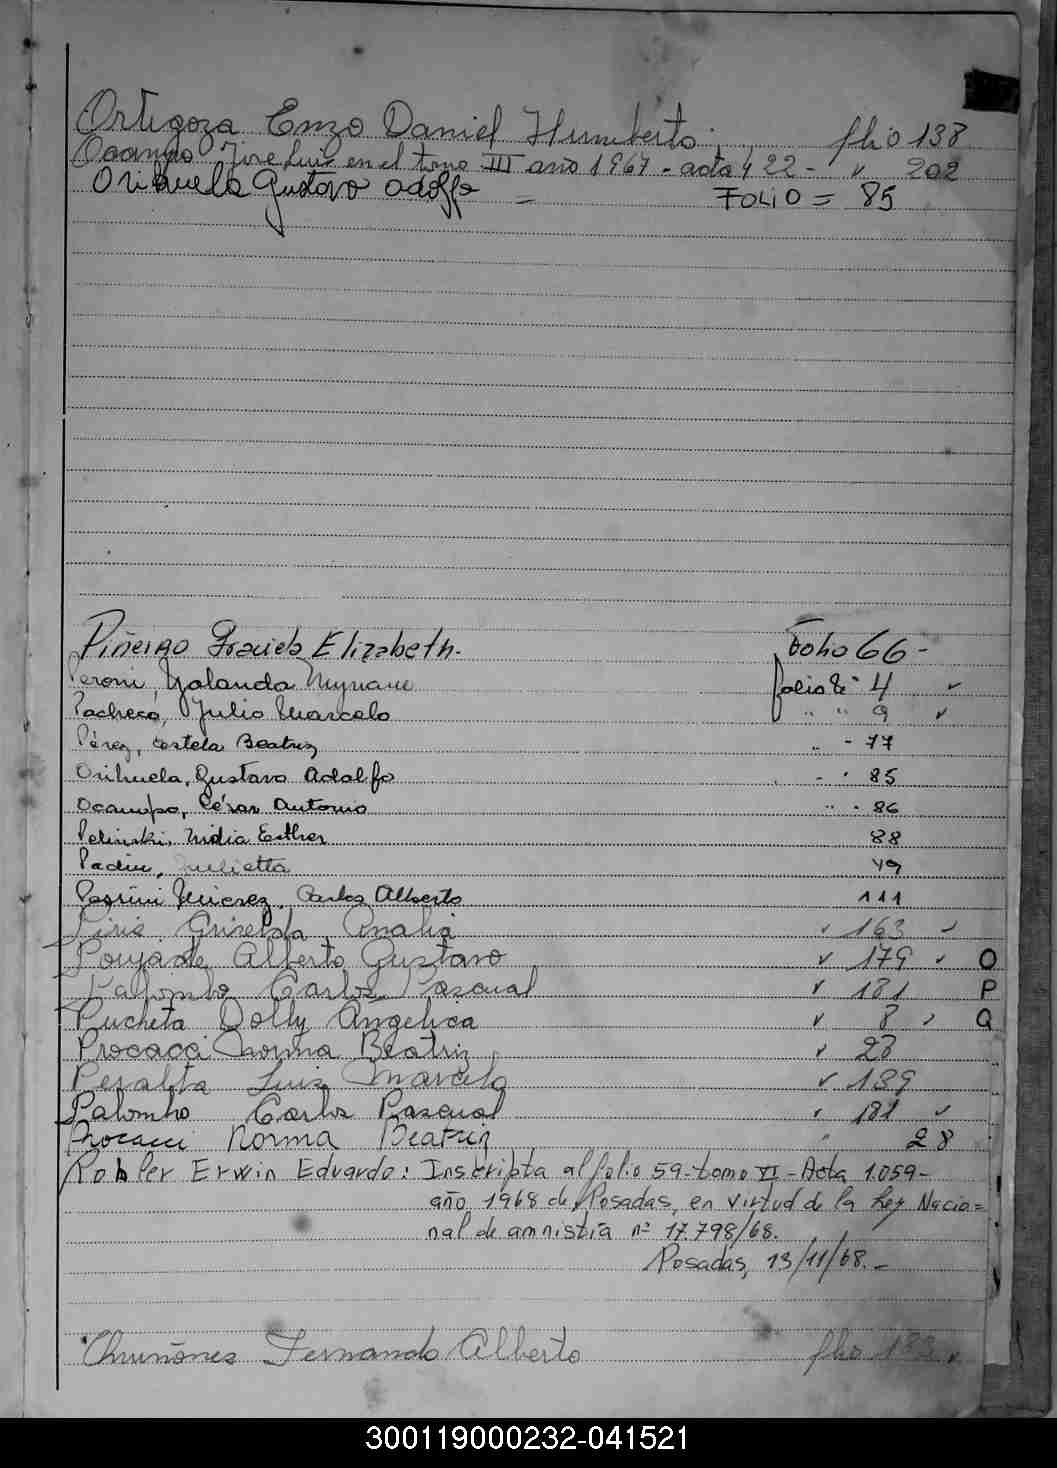 Ortigoza Enzo Daniel Humberto. folio 138
Ocampo Jose Luis en el tomo III año 1967 - acta 422 - " 202
Orihuela Gustavo Adolfo = FOLIO = 85
Piñeiro Graciela Elizabeth. Folio 66 -
Peroni, Yolanda Myriam folio 4
Pacheco, Julio Marcelo " " 9
Pérez, Estela Beatriz " - 77
Orihuela, Gustavo Adolfo - " 85
Ocampo, César Antonio " - 86
Pelinski, Nidia Esther 88
Padin, Julietta 49
Carlos Alberto 111
Piris Griselda Analia " 163
Alberto Gustavo " 179 O
Palombo Carlos Pascual " 181 P
Pucheta Dolly Angelica " 8 Q
Procacci Norma Beatriz " 28
Peralta Luis Marcelo " 139
Palombo Carlos Pascual " 181
Procacci Norma Beatriz " 28
Erwin Eduardo: Inscripta al folio 59-tomo VI - Acta 1.059-
año 1968 de Posadas, en virtud de la Ley Nacio=
nal de amnistía nº 17.798/68.
Posadas, 13/11/68.-
Fernando Alberto folio
300119000232-041521